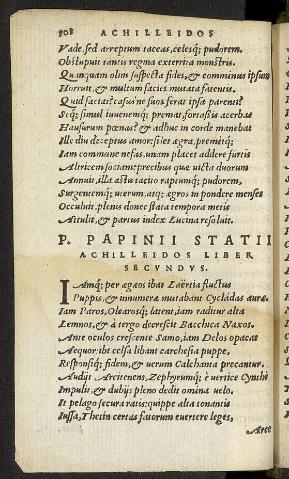 508 ACHILLEIDOS
Vade, sed arreptum taceas, celesq; pudorem.
Obstupuit tantis regina exterrita monstris.
Quanquam olim suspecta fides, & comminus ipsum
Horruit, & multum facies mutata fatentis.
Quid faciat? casus ne suos ferat ipsa parenti?
Seq; simul iuuenemq; premat, fortassis acerbas
Hausurum pœnas? & adhuc in corde manebat
Ille diu deceptus amor: silet ægra, premitq;
Iam commune nefas, unam placet addere furtis
Altricem sociam: precibus quæ uicta duorum
Annuit, illa astu tacito raptumq; pudorem,
Surgentemq; uterum, atq; ægros in pondere menses
Occuluit, plenis donec stata tempora metis
Attulit, & partus index Lucina resoluit.
P. PAPINII STATII
ACHILLEIDOS LIBER
SECVNDVS.
IAmq; per ægæos ibat Laërtia fluctus
Puppis, & innumeræ mutabant Cycladas auræ.
Iam Paros, Olearosq; latent, iam raditur alta
Lemnos, & à tergo decrescit Bacchica Naxos.
Ante oculos crescente Samo, iam Delos opacat
Aequor: ibi celsa libant carchesia puppe,
Responsiq; fidem, & uerum Calchanta precantur.
Audijt Arcitenens, Zephyrumq; è uertice Cynthi
Impulit, & dubijs pleno dedit omina uelo.
It pelago secura ratis: quippe alta tonantis
Iussa, Thetin certas fatorum euertere leges,
Arce